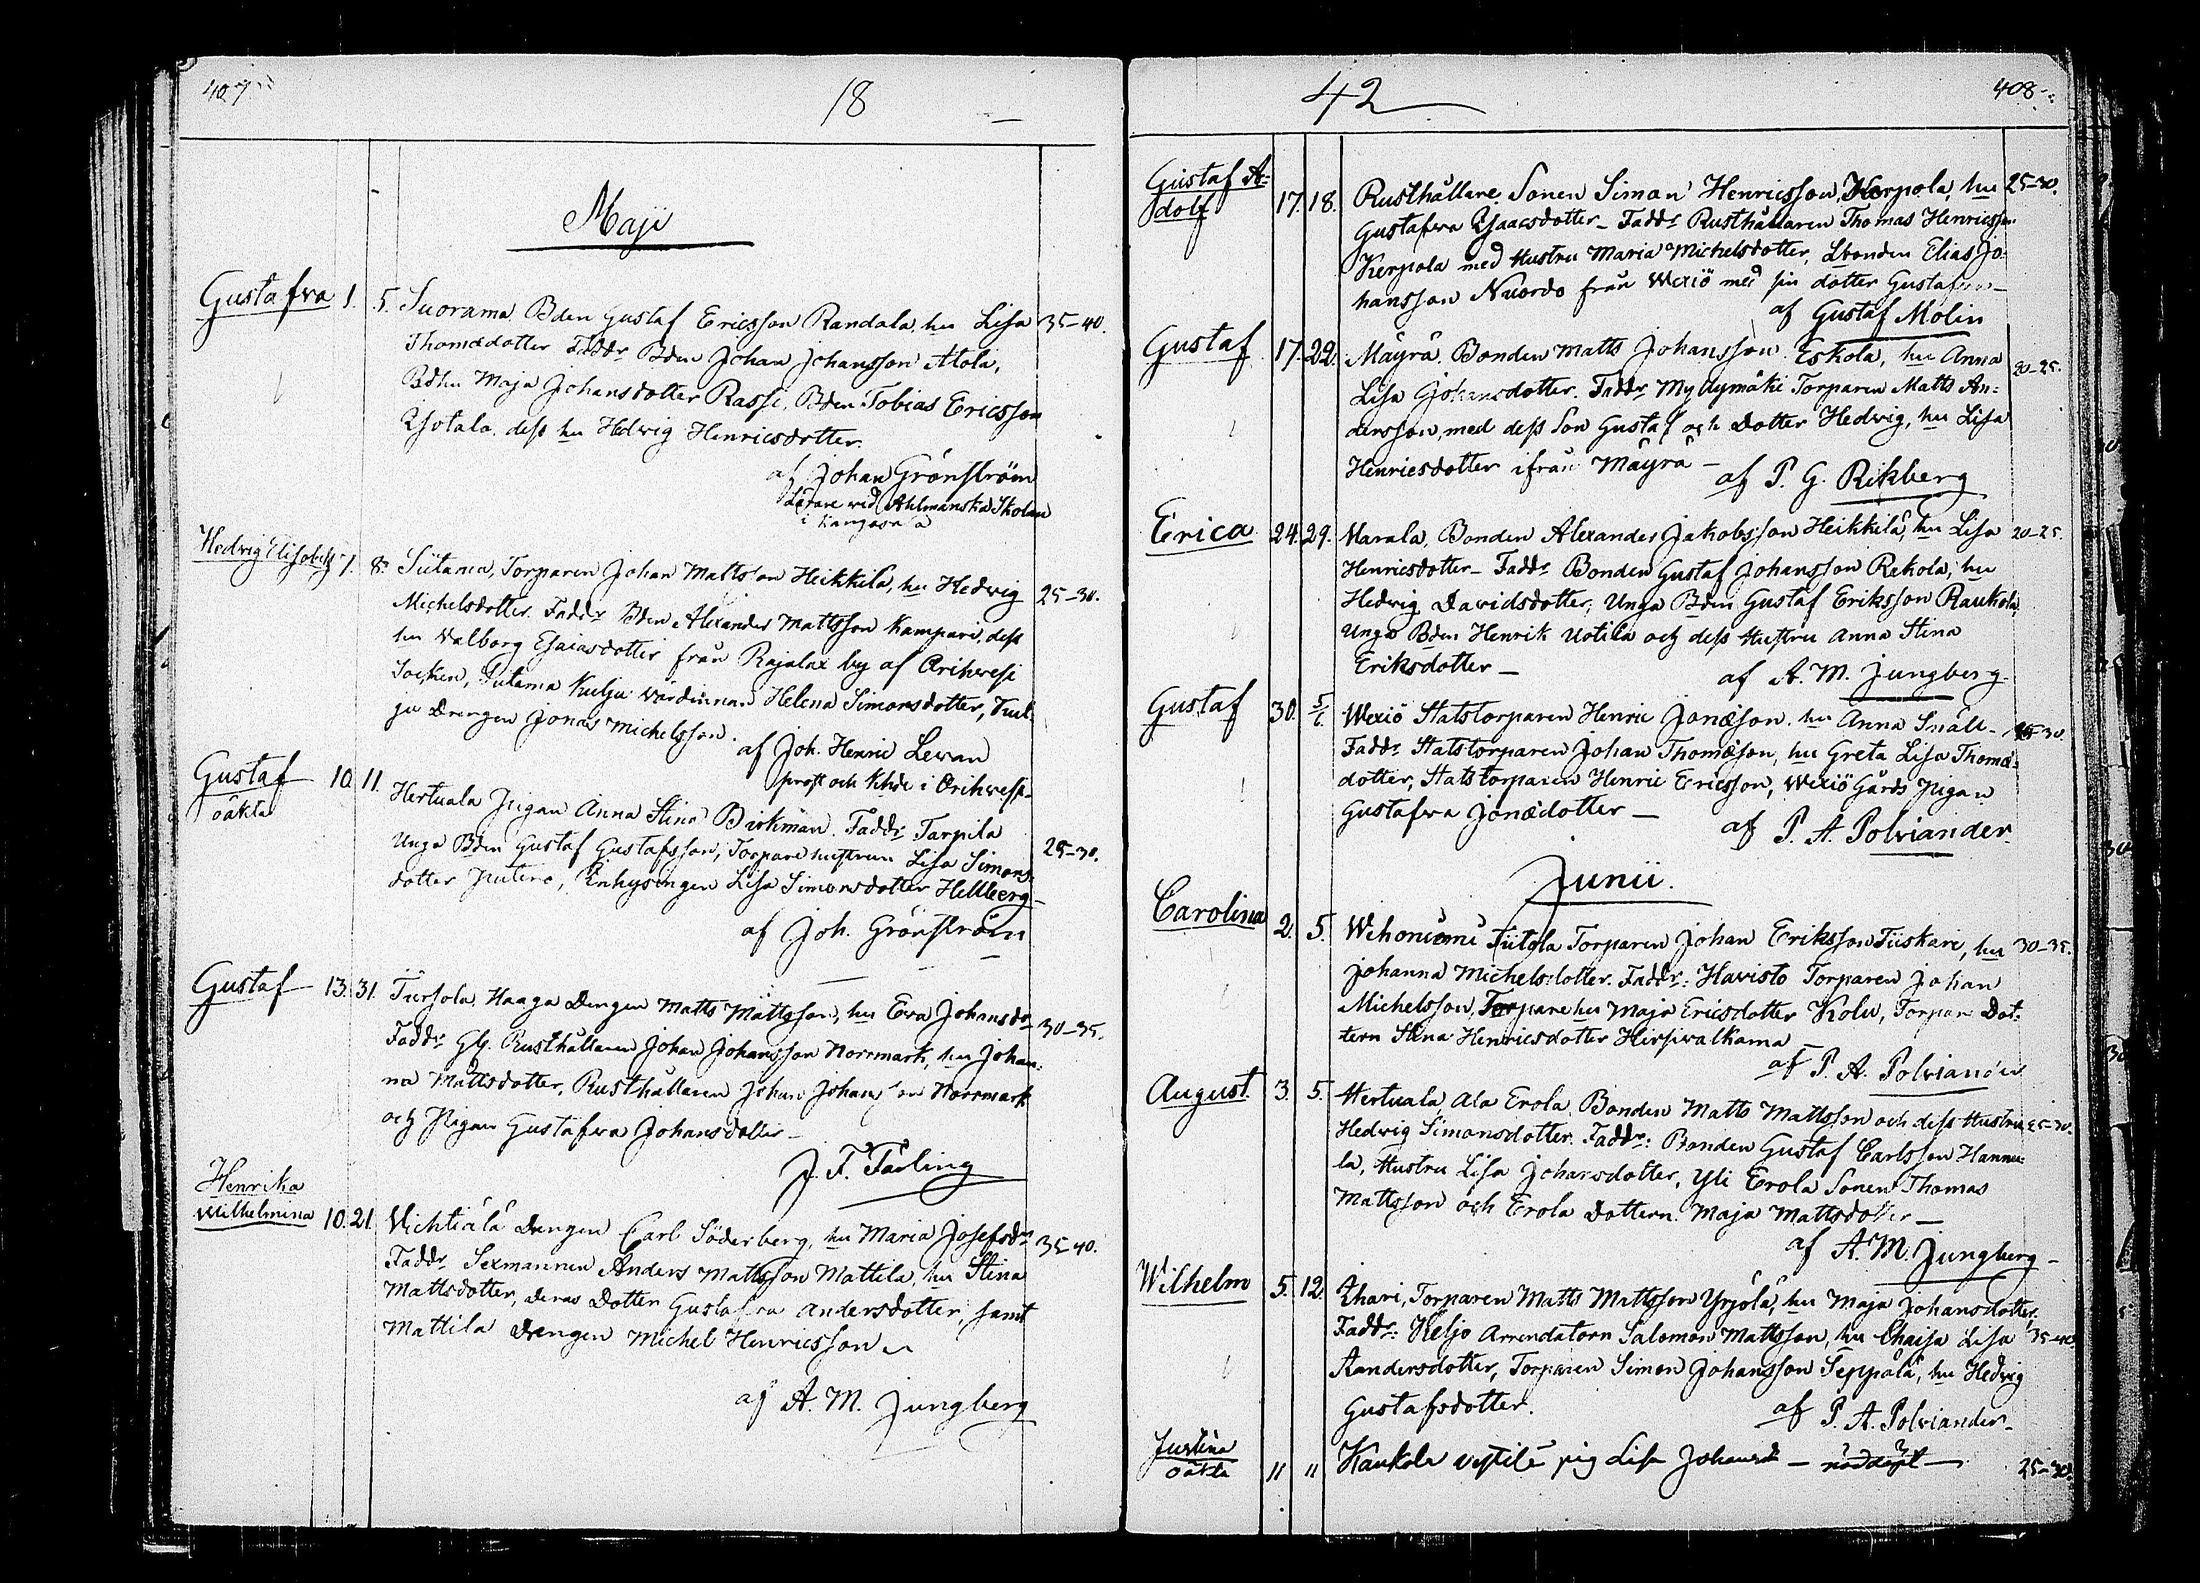 407
18
Maji
Gustafva 1. 5. Suorama Bden Gustaf Ericsson Randala, hu Lisa 35–40.
Thomædotter Faddr Bden Johan Johansson Atola,
Bdhu Maja Johansdotter Rassi, Bden Tobias Ericsson
Ysotala, dess hu Hedvig Henricsdotter.
af Johan Grönström
Lärare vid Ahlmanska Skolan
i Kangasala
Hedvig Elisabeth 7. 8. Siitama, Torparen Johan Mattsson Heikkilä, hu Hedvig 25–30.
Michelsdotter. Faddr Bden Alexander Mattsson Kampari, dess
hu Walborg Esaiasdotter från Rajalax by af Orihvesi
Socken, Siitama Kulju värdinnan Helena Simonsdotter, Kul-
ju Drengen Jonas Michelsson.
af Joh. Henric Levan
prost och Khde i Orihvesi
Gustaf 10. 11. Hertuala Pigan Anna Stina Birkman. Faddr Tarpila
oäkta
Unga Bden Gustaf Gustafsson, Torparehustrun Lisa Simons- 25–30.
dotter Jutere, Inhysingen Lisa Simonsdotter Hellberg
af Joh. Grönström
Gustaf 13. 31. Tursola, Haaga Drengen Matts Mattsson, hu Eva Johansdr 30–35.
Faddr Gl. Rusthållaren Johan Johansson Norrmark, hu Johan-
na Mattsdotter, Rusthållaren Johan Johansson Norrmark
och Pigan Gustafva Johansdotter
J. F. Färling
Henrika
Wilhelmina 10. 21. Vichtiälä Drengen Carl Söderberg, hu Maria Josefsdr 35–40.
Faddr Sexmannen Anders Mattsson Mattila, hu Stina
Mattsdotter, deras Dotter Gustafva Andersdotter, samt
Mattila Drengen Michel Henricsson
af A. M. Jungberg
42
408
Gustaf A-
dolf 17. 18. Rusthållare Sonen Simon Henricsson, Kerpola, hu 25–30.
Gustafva Ysaacsdotter – Faddr Rusthållaren Thomas Henricsson
Kerpola med Hustru Maria Michelsdotter, Lbonden Elias Jo-
hansson Nuordo från Wexiö med sin dotter Gustafva –
af Gustaf Molin
Gustaf 17. 22. Mäyrä. Bonden Matts Johansson Eskola, hu Anna 20–25.
Lisa Johansdotter. Faddr Myllymäki Torparen Matts An-
dersson, med dess Son Gustaf och Dotter Hedvig, hu Lisa
Henricsdotter ifrån Mäyrä –
af P. G. Rikberg
Erica 24. 29. Harala, Bonden Alexander Jakobsson Heikkilä, hu Lisa 20–25.
Henricsdotter – Faddr Bonden Gustaf Johansson Rekola, hu
Hedvig Davidsdotter, Unga Bden Gustaf Eriksson Raukola,
Unga Bden Henrik Uotila och dess Hustru Anna Stina
Eriksdotter –
af A. M. Jungberg.
Gustaf 30. 5/6. Wexiö Statstorparen Henric Jonæson, hu Anna Snäll – 25–30.
Faddr Statstorparen Johan Thomæson, hu Greta Lisa Thomæ-
dotter, Statstorparen Henric Ericsson, Wexiö Gårds Pigan
Gustafva Jonædotter –
af P. A. Polviander.
Junii.
Carolina 2. 5. Wehoniemi Tiitola Torparen Johan Eriksson Tiiskari, hu 30–35.
Johanna Michelsdotter. Faddr: Havisto Torparen Johan
Michelsson, Torparehu Maja Ericsdotter Kolu, Torpare Dot-
tern Stina Henricsdotter Hirsivalkama
af P. A. Polviander
August. 3. 5. Hertuala, Ala Erola Bonden Matts Mattsson och dess Hustru 25–30.
Hedvig Simonsdotter. Faddr: Bonden Gustaf Carlsson Hannu-
la, Hustru Lisa Johansdotter, Yli Erola Sonen Thomas
Mattsson och Erola Dottern Maja Mattsdotter –
af A. M. Jungberg –
Wilhelm 5. 12. Ihari, Torparen Matts Mattsson Yrjölä, hu Maja Johansdotter,
Faddr: Keljo Arrendatorn Salomon Mattsson, hu Chaisa Lisa 35–40.
Andersdotter, Torparen Simon Johansson Seppälä, hu Hedvig
Gustafsdotter.
af P. A. Polviander.
Justina
oäkta 11 11 Kaukola pig Lisa Johansd – nöddöpt – 25–30.